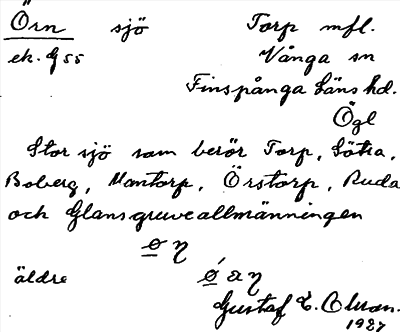 Örn sjö Torp mfl.
ek. G 55 Vånga sn
Finspånga läns hd.
Ögl
Stor sjö som berör Torp, Sätra,
Boberg, Mantorp, Örstorp, Ruda
och Glansgruveallmänningen
ɵ η
äldre ǿ a η
Gustaf E. Olson.
1927